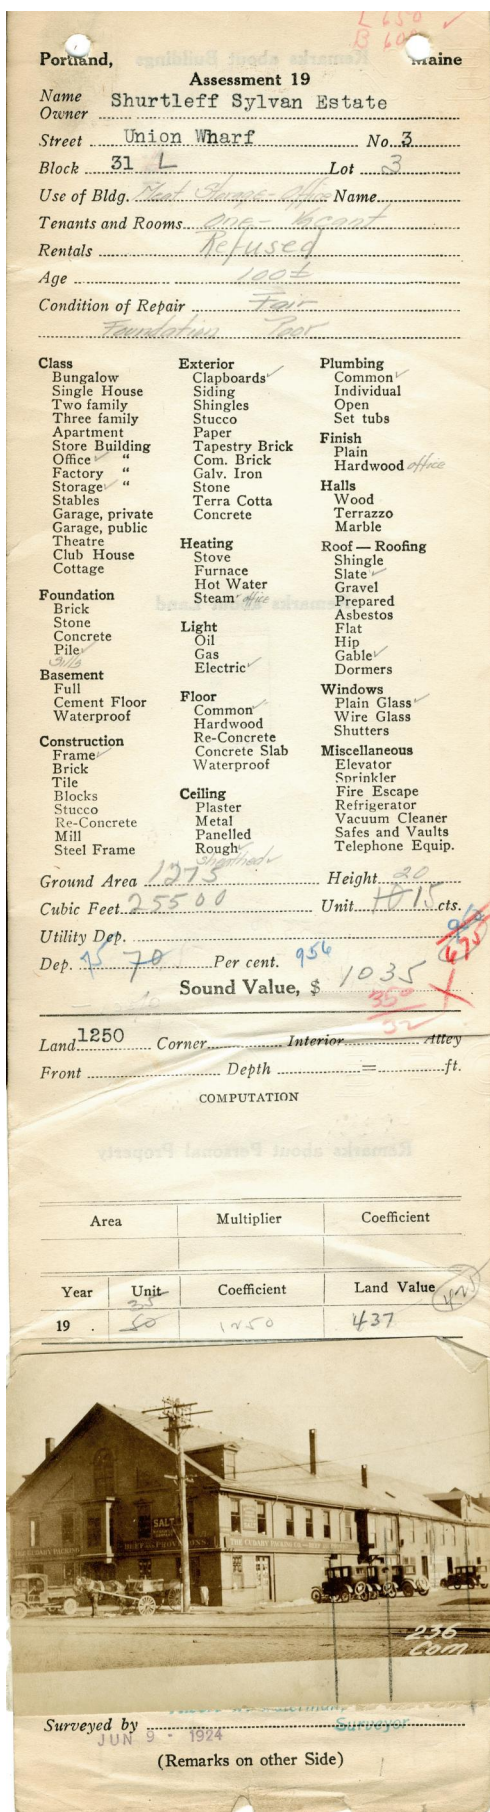 L 650
B 600
Portland, Maine
Assessment 19
Name
Owner Shurtleff Sylvan Estate
Street Union Wharf No. 3
Block 31 L Lot 3
Use of Bldg. Meat Storage - Office Name
Tenants and Rooms one - Vacant
Rentals Refused
Age 100±
Condition of Repair Fair
Foundation Poor
Class
Bungalow
Single House
Two family
Three family
Apartment
Store Building
Office ✓ "
Factory "
Storage ✓ "
Stables
Garage, private
Garage, public
Theatre
Club House
Cottage
Foundation
Brick
Stone
Concrete
Pile ✓
Sills
Basement
Full
Cement Floor
Waterproof
Construction
Frame ✓
Brick
Tile
Blocks
Stucco
Re-Concrete
Mill
Steel Frame
Exterior
Clapboards ✓
Siding
Shingles
Stucco
Paper
Tapestry Brick
Com. Brick
Galv. Iron
Stone
Terra Cotta
Concrete
Heating
Stove
Furnace
Hot Water
Steam office
Light
Oil
Gas
Electric ✓
Floor
Common ✓
Hardwood
Re-Concrete
Concrete Slab
Waterproof
Ceiling
Plaster
Metal
Panelled
Rough ✓
Sheathed ✓
Plumbing
Common ✓
Individual
Open
Set tubs
Finish
Plain
Hardwood office
Halls
Wood
Terrazzo
Marble
Roof — Roofing
Shingle
Slate ✓
Gravel
Prepared
Asbestos
Flat
Hip
Gable ✓
Dormers
Windows
Plain Glass ✓
Wire Glass
Shutters
Miscellaneous
Elevator
Sprinkler
Fire Escape
Refrigerator
Vacuum Cleaner
Safes and Vaults
Telephone Equip.
Ground Area 1275 Height 20
Cubic Feet 25500 Unit 10 15 cts.
Utility Dep.
675
Dep. 75 70 Per cent. 956
Sound Value, $ 1035
350
52
Land 1250 Corner Interior Alley
Front Depth = ft.
COMPUTATION
Area Multiplier Coefficient
Year Unit Coefficient Land Value 425
35
19 50 1250 437
SALT
BEEF AND PROVISIONS
THE CUDAHY PACKING CO.
236
Com
Surveyed by Surveyor
JUN 9 - 1924
(Remarks on other Side)